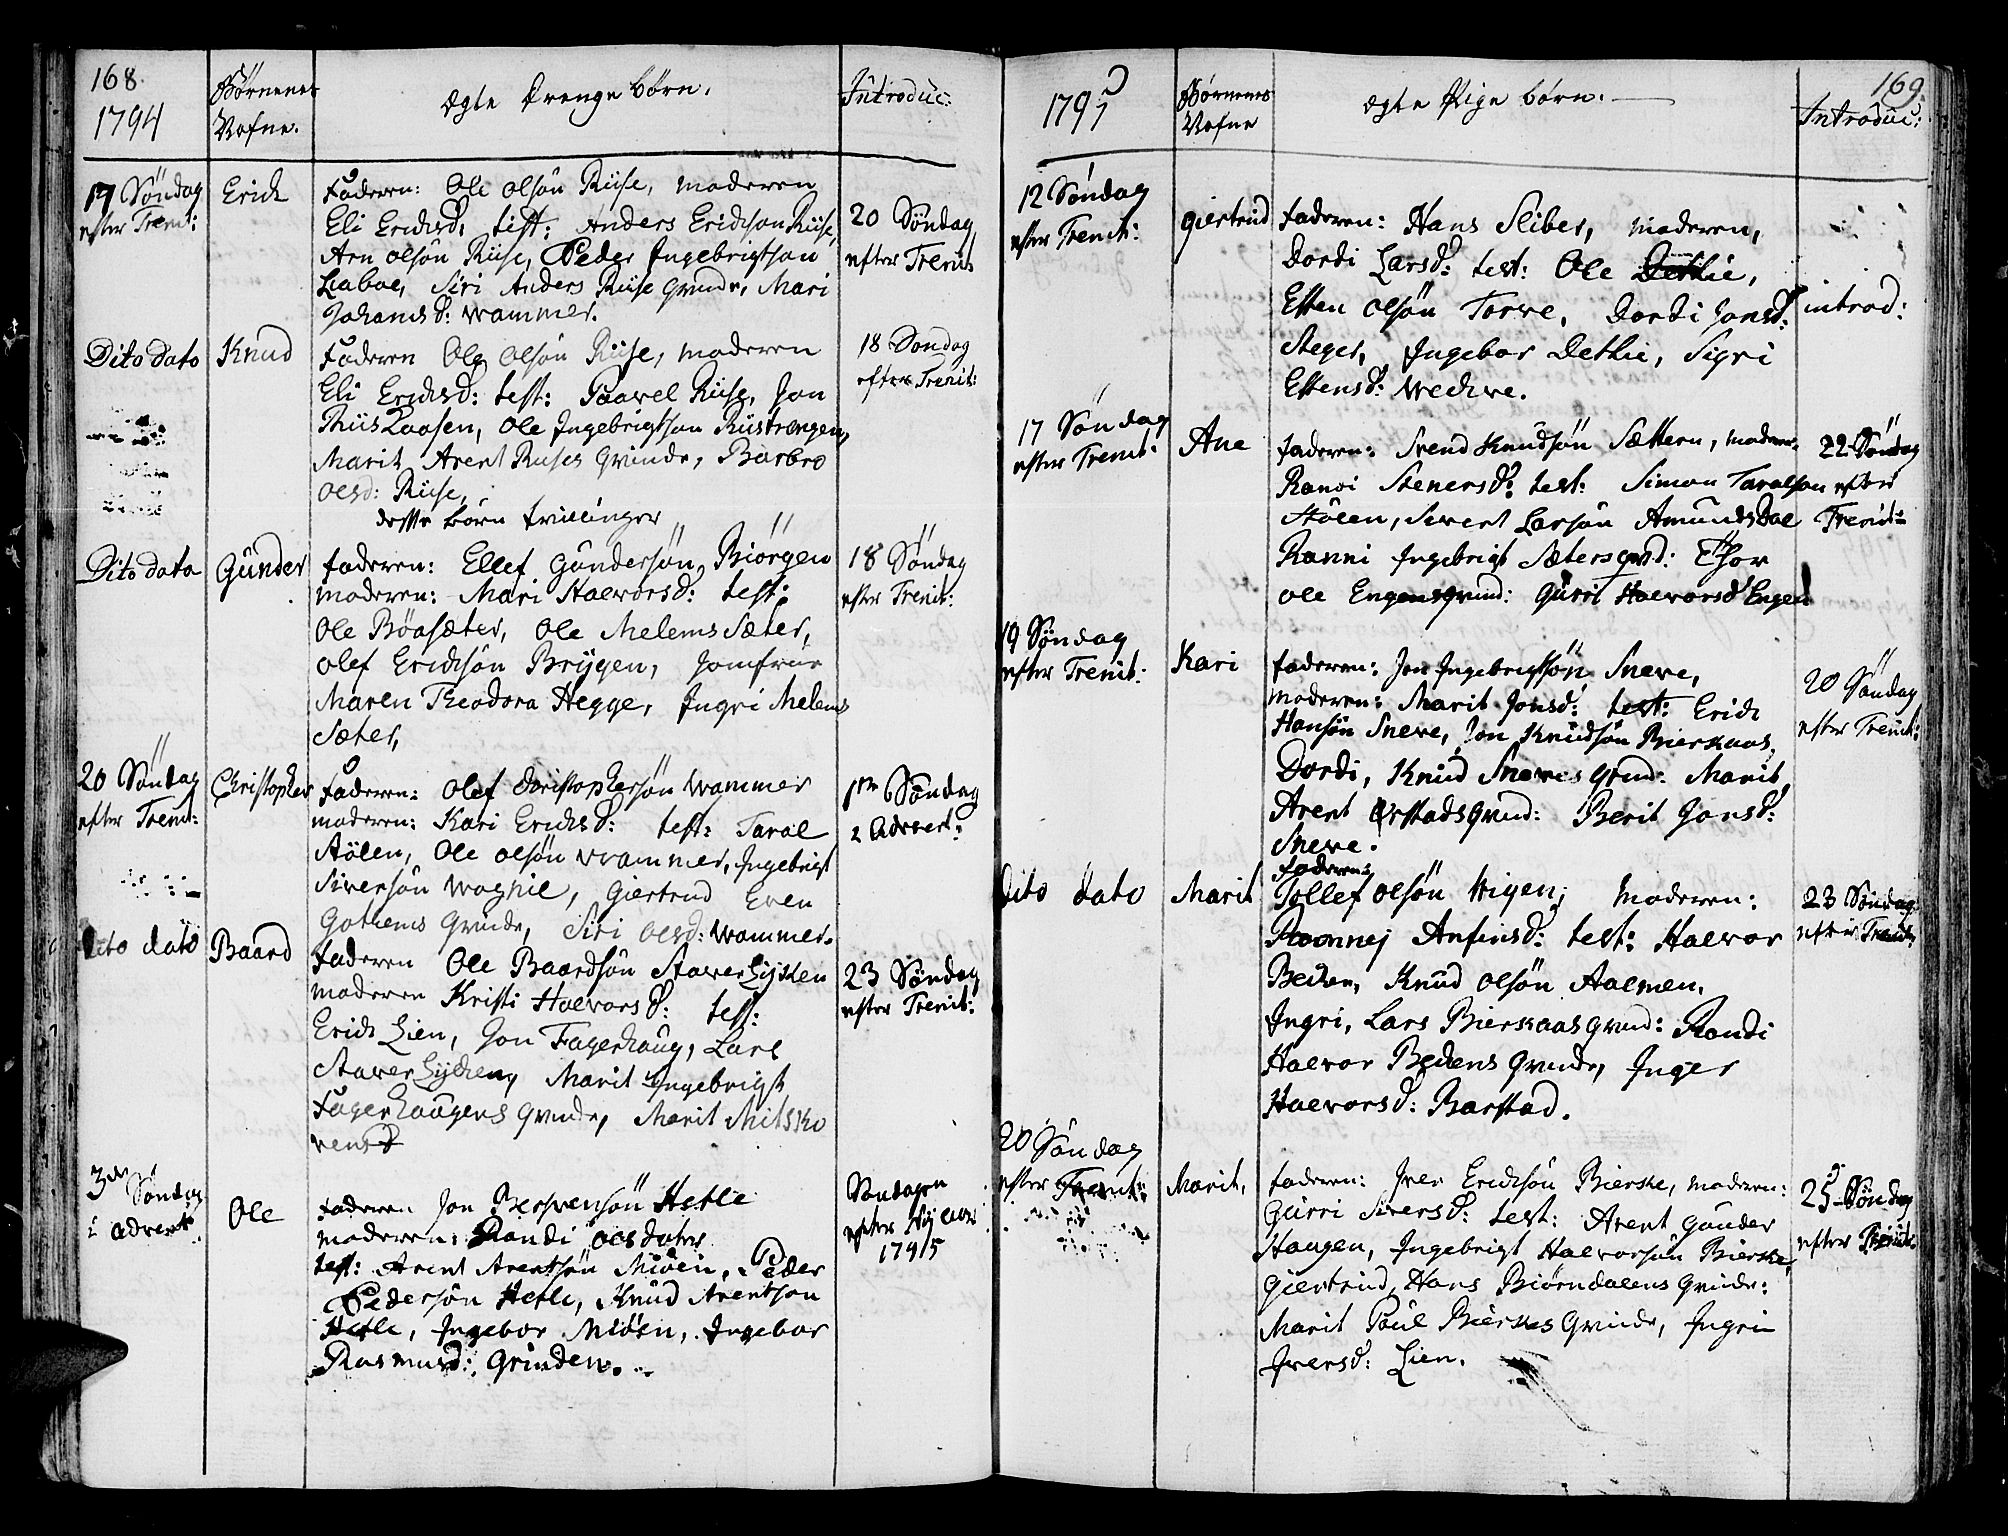 168.
1794
Børnenes
Nafne.
Ægte Drenge børn.
Introduc:
17 Söndag
efter Trenit:
Erich
Faderen: Ole Olsön Riise, moderen
Eli Erichsd. test: Anders Erichson Riise
Arn Olsön Riise, Peder Ingebrigtson
Laboe, Siri Anders Riise Qvinde, Mari
Johansd: Wammer.
20 Söndag
efter Trenit
Dito dato
Knud
Faderen Ole Olsön Riise, moderen
Eli Erichsd: test: Paavel Riise, Jon
Riis Ole Ingebrigtson Riistrøngen,
Marit Arent Riises Qvinde, Barbro
Olsd: Riise,
desse børn trillinger
18 Söndag
efter Trenit:
Dito dato
Gunder
faderen: Ellef Gundersön, Biörgen
moderen: Mari Halvorsd: test:
Ole Böasæter, Ole Melems Sæter,
Olef Erichsön Brÿgen, Jomfrue
Maren Theodora Hegge, Ingri Melems
Sæter,
18 Söndag
efter Trenit:
20 Söndag
efter Trenit:
Christopher
faderen: Olef Christophersön Wammer
moderen: Kari Erichsd: test: Taral
Stölen, Ole Olsön Wammer, Ingebrigt
Siversön Wognil, Giertrud Even
Gotiems Qvinde, Siri Olsd: Wammer.
1ste Söndag
i Advent:
Dito dato
Baard
faderen Ole Baardsön Staverlÿkken
moderen Kristi Halvorsd: test:
Erich Lien, Jon Fagerhaug, Lars
Staverlÿcken, Marit Ingebrigt
Fagerhaugens Qvinde, Marit Mitsko
vensd
23 Söndag
efter Trenit:
3de Söndag
i Advent
Ole
faderen Jon Bersvensön Hetle
moderen: Randi Olsdater
test: Arent Arentsön Miöen, Peder
Pedersön Hetle, Knud Arentson
Hetle, Ingebor Miöen, Ingebor
Rasmusd: Grinden.
Søndagen
efter Nÿ aar
1795
1794
169.
Børnenes
Nafne
Ægte Pige børn.
Introduc:
12 Söndag
efter Trenit:
Giertrud
faderen: Hans Sliber, moderen,
Dordi Larsd: test: Ole Dethie,
Esten Olsön Torve, Dordi Jonsd:
Steger, Ingebor Dethie, Sigri
Estensd: Wedwe.
introd:
17 Söndag
efter Trenit:
Ane
faderen: Svend Knudsön Sættern, moderen
Ranoi Stenersd: test: Simon Taralson
Stölen, Sivert Larsön Amundsdal
Ranni Ingebrigt Sæters qvd: Thor
Ole Engens qvind: Gurri Halvorsd Engen
22 Söndag
efter
Trenit:
19 Söndag
efter Trenit:
Kari
faderen: Jon Ingebrigtsön Sneve,
moderen: Marit Jonsd: test: Erich
Hansön Sneve, Jon Knudsön Bierkaas,
Dordi, Knud Sneves Qvind: Marit,
Arent Ørstads Qvind: Berit Jonsd:
Sneve.
20 Söndag
efter Trenit:
Dito dato
Marit
faderen:
Tollef Olsön Wigen, moderen:
Roonnej Anfinsd: test: Halvor
Beden, Knud Olsön Aalmen,
Ingri, Lars Bierkaas Qvind: Randi
Halvor Bedens Qvinde, Inger
Halvorsd: Barstad.
23 Söndag
efter Trenit,
20 Söndag
efter Trenit:
Marit,
faderen: Iver Erichsön Bierske, moderen:
Gurri Siversd: test: Arent Gunder
Haugen, Ingebrigt Halvorsön Bierske,
Giertrud, Hans Biörndalens Qvinde:
Marit Poul Bierskes Qvinde, Ingri
Iversd: Lien.
25 Söndag
efter Trenit: